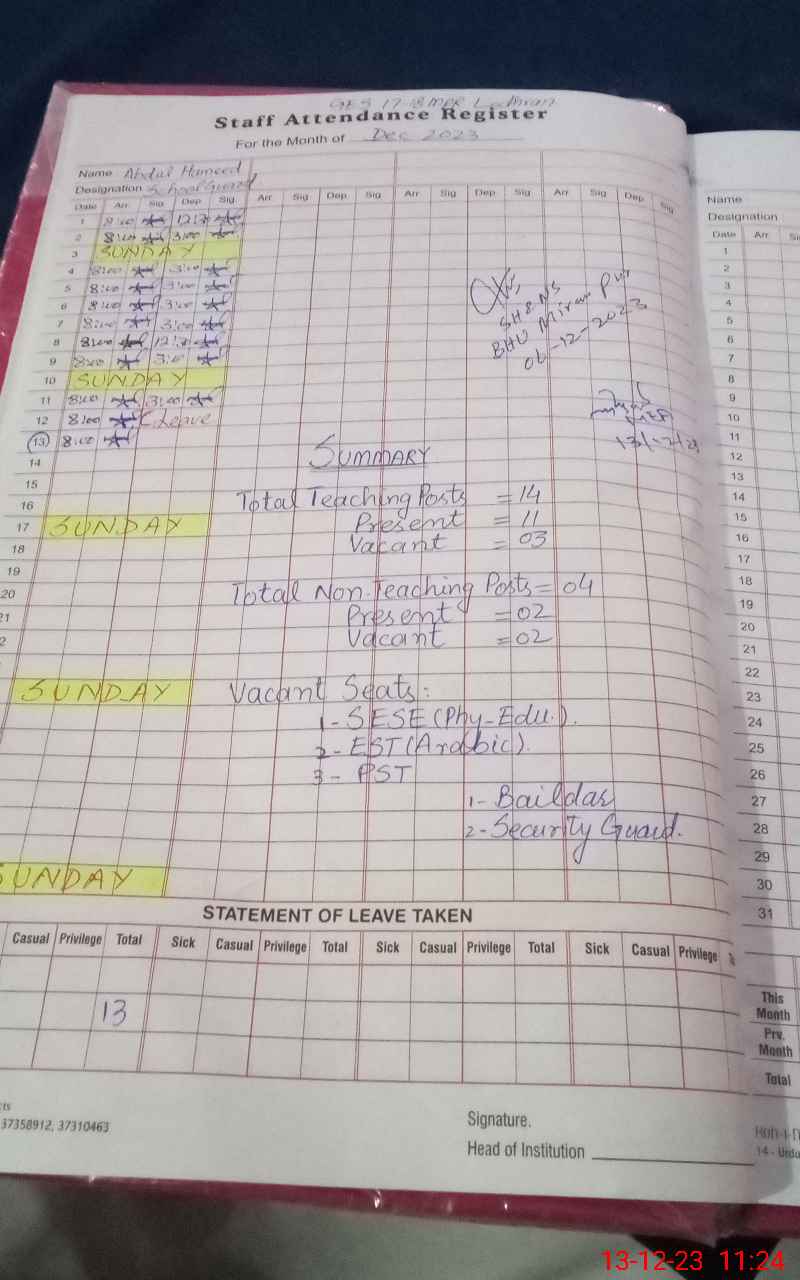 GES 17-18 MPR Lodhran
Staff Attendance Register
For the Month of Dec 2023
Name Abdul Hameed
Designation School Guard
Date Arr. Sig Dep. Sig. Arr. Sig Dep. Sig Arr. Sig Dep. Sig Arr. Sig Dep. Sig
1 8:00
2 8:00 3:00
3 SUNDAY
4 8:00 3:00
5 8:00 3:00
6 8:00 3:00
7 8:00 3:00
8 8:00
9 8:00 3:00
10 SUNDAY
11 8:00 3:00
12 8:00 C.leave
13 8:00
14
15
16
17 SUNDAY
18
19
20
21
SUNDAY
SUNDAY
SH&NS
BHU Miran Pur
06-12-2023
SUMMARY
Total Teaching Posts = 14
Present = 11
Vacant = 03
Total Non-Teaching Posts = 04
Present = 02
Vacant = 02
Vacant Seats:
1- SESE (Phy-Edu.).
2- EST (Arabic).
3- PST
1- Baildar
2- Security Guard.
STATEMENT OF LEAVE TAKEN
Casual Privilege Total Sick Casual Privilege Total Sick Casual Privilege Total Sick Casual Privilege
13
37358912, 37310463
Signature.
Head of Institution
Name
Designation
Date Arr.
1
2
3
4
5
6
7
8
9
10
11
12
13
14
15
16
17
18
19
20
21
22
23
24
25
26
27
28
29
30
31
This
Month
Prv.
Month
Total
13-12-23 11:24